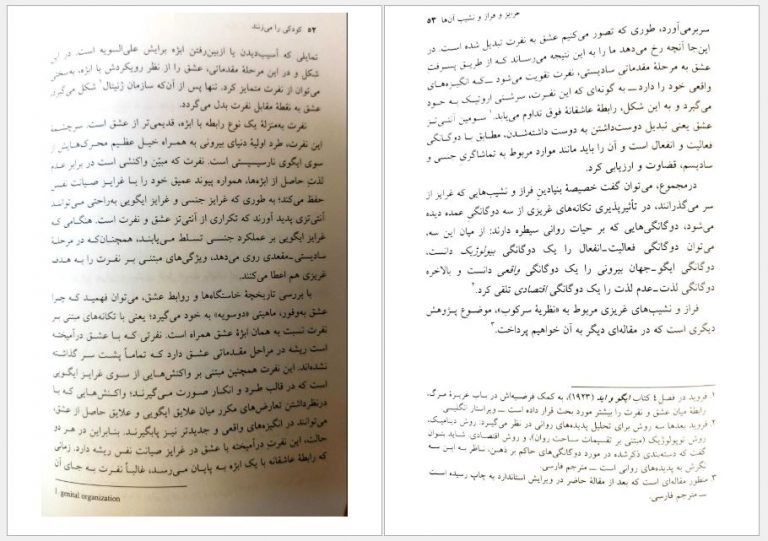 ۵۲ کودکی را می‌زنند
تمایلی که آسیب‌دیدن یا ازبین‌رفتن ابژه برایش علی‌السویه است. در این
شکل و در این مرحلهٔ مقدماتی، عشق را از نظر رویکردش با ابژه، به‌سختی
می‌توان از نفرت متمایز کرد. تنها پس از آن‌که سازمان ژنیتال۱ شکل می‌گیرد
عشق به نقطهٔ مقابل نفرت بدل می‌گردد.
نفرت به‌منزلهٔ یک نوع رابطه با ابژه، قدیمی‌تر از عشق است. سرچشمهٔ
این نفرت، طرد اولیهٔ دنیای بیرونی به همراه خیل عظیم محرک‌هایش از
سوی ایگوی نارسیسیستی است. نفرت که مبیّن واکنشی است در برابر عدم
لذتِ حاصل از ابژه‌ها، همواره پیوند عمیق خود را با غرایز صیانت نفس
حفظ می‌کند؛ به طوری که غرایز جنسی و غرایز ایگویی به‌راحتی می‌توانند
آنتی‌تزی پدید آورند که تکراری از آنتی‌تز عشق و نفرت است. هنگامی که
غرایز ایگویی بر عملکرد جنسی تسلط می‌یابند، همچنان‌که در مرحلهٔ
سادیستی-مقعدی روی می‌دهد، ویژگی‌های مبتنی بر نفرت را به هدف
غریزی هم اعطا می‌کنند.
با بررسی تاریخچهٔ خاستگاه‌ها و روابط عشق، می‌توان فهمید که چرا
عشق به‌وفور، ماهیتی «دوسویه» به خود می‌گیرد؛ یعنی با تکانه‌های مبتنی بر
نفرت نسبت به همان ابژهٔ عشق همراه است. نفرتی که با عشق درآمیخته
است ریشه در مراحل مقدماتی عشق دارد که تماماً پشت سر گذاشته
نشده‌اند. این نفرت همچنین مبتنی بر واکنش‌هایی از سوی غرایز ایگویی
است که در قالب طرد و انکار صورت می‌گیرند؛ واکنش‌هایی که با
درنظرداشتن تعارض‌های مکرر میان علایق ایگویی و علایق حاصل از عشق،
می‌توانند در انگیزه‌های واقعی و جدیدتر نیز پابگیرند. بنابراین در هر دو
حالت، این نفرتِ درآمیخته با عشق در غرایز صیانت نفس ریشه دارد. زمانی
که رابطهٔ عاشقانه با یک ابژه به پایان می‌رسد، غالباً نفرت به جای آن
1 genital organization
غرایز و فراز و نشیب آن‌ها ۵۳
سربرمی‌آورد، طوری که تصور می‌کنیم عشق به نفرت تبدیل شده است. در
این‌جا آنچه رخ می‌دهد ما را به این نتیجه می‌رساند که از طریق پسرفت
عشق به مرحلهٔ مقدماتی سادیستی، نفرت تقویت می‌شود —که انگیزه‌های
واقعی خود را دارد— به گونه‌ای که این نفرت، سرشتی اروتیک به خود
می‌گیرد و به این شکل، رابطهٔ عاشقانهٔ فوق تداوم می‌یابد.۱ سومین آنتی‌تز
عشق یعنی تبدیل دوست‌داشتن به دوست داشته‌شدن، مطابق با دوگانگی
فعالیت و انفعال است و آن را باید مانند موارد مربوط به تماشاگری جنسی و
سادیسم، قضاوت و ارزیابی کرد.
درمجموع، می‌توان گفت خصیصهٔ بنیادینِ فراز و نشیب‌هایی که غرایز از
سر می‌گذرانند، در تأثیرپذیری تکانه‌های غریزی از سه دوگانگی عمده دیده
می‌شود، دوگانگی‌هایی که بر حیات روانی سیطره دارند: از میان این سه،
می‌توان دوگانگی فعالیت-انفعال را یک دوگانگی بیولوژیک دانست،
دوگانگی ایگو-جهان بیرونی را یک دوگانگی واقعی دانست و بالاخره
دوگانگی لذت-عدم لذت را یک دوگانگی اقتصادی تلقی کرد.۲
فراز و نشیب‌های غریزی مربوط به «نظریهٔ سرکوب»، موضوع پژوهش
دیگری است که در مقاله‌ای دیگر به آن خواهیم پرداخت.۳
۱ فروید در فصل ٤ کتاب ایگو و اید (۱۹۲۳)، به کمک فرضیه‌اش در باب غریزهٔ مرگ،
رابطهٔ میان عشق و نفرت را بیشتر مورد بحث قرار داده است — ویراستار انگلیسی
۲ فروید بعدها سه روش برای تحلیل پدیده‌های روانی در نظر می‌گیرد. روش دینامیک،
روش توپولوژیک (مبتنی بر تقسیمات ساحت روان)، و روش اقتصادی. شاید بتوان
گفت که دسته‌بندی ذکرشده در مورد دوگانگی‌های حاکم بر ذهن، ناظر به این سه
نگرش به پدیده‌های روانی است — مترجم فارسی.
۳ منظور مقاله‌ای است که بعد از مقالهٔ حاضر در ویرایش استاندارد به چاپ رسیده است
— مترجم فارسی.